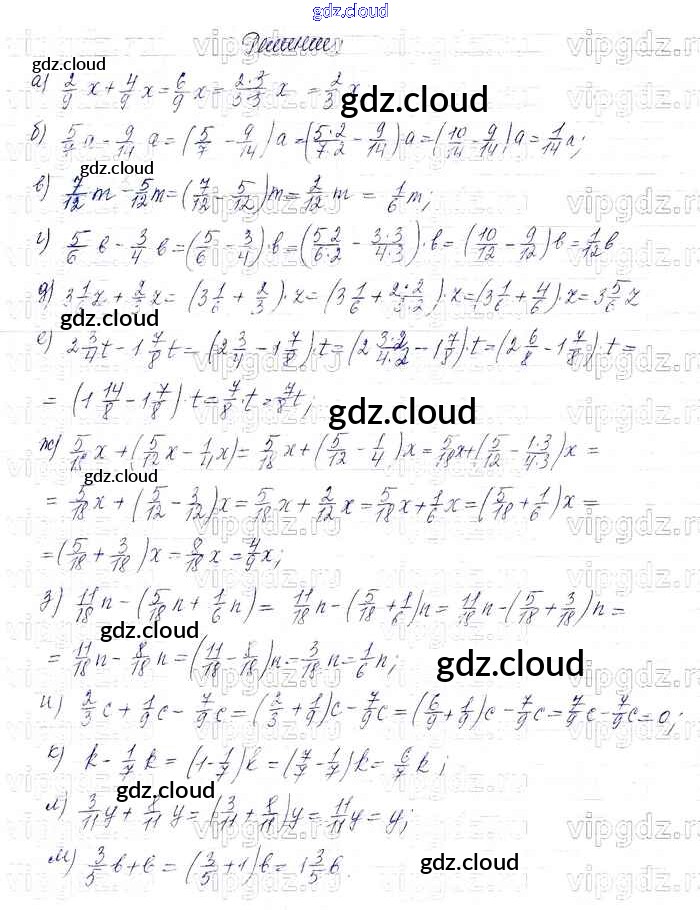 gdz.cloud
Решение:
gdz.cloud
а) 2/9 x + 4/9 x = 6/9 x = 2·3/3·3 x = 2/3 x
gdz.cloud
б) 5/7 a - 9/14 a = (5/7 - 9/14) a = (5·2/7·2 - 9/14) a = (10/14 - 9/14) a = 1/14 a;
gdz.cloud
в) 7/12 m - 5/12 m = (7/12 - 5/12) m = 2/12 m = 1/6 m;
г) 5/6 в - 3/4 в = (5/6 - 3/4)·в = (5·2/6·2 - 3·3/4·3)·в = (10/12 - 9/12) в = 1/12 в
д) 3 1/6 z + 2/3 z = (3 1/6 + 2/3)·z = (3 1/6 + 2·2/3·2)·z = (3 1/6 + 4/6)·z = 3 5/6 z
gdz.cloud
е) 2 3/4 t - 1 7/8 t = (2 3/4 - 1 7/8)·t = (2 3·2/4·2 - 1 7/8)·t = (2 6/8 - 1 7/8)·t =
= (1 14/8 - 1 7/8)·t = 7/8·t = 7/8 t;
gdz.cloud
ж) 5/18 x + (5/12 x - 1/4 x) = 5/18 x + (5/12 - 1/4) x = 5/18 x + (5/12 - 1·3/4·3) x =
gdz.cloud
= 5/18 x + (5/12 - 3/12) x = 5/18 x + 2/12 x = 5/18 x + 1/6 x = (5/18 + 1/6) x =
= (5/18 + 3/18) x = 8/18 x = 4/9 x;
з) 11/18 n - (5/18 n + 1/6 n) = 11/18 n - (5/18 + 1/6) n = 11/18 n - (5/18 + 3/18) n =
gdz.cloud
= 11/18 n - 8/18 n = (11/18 - 8/18) n = 3/18 n = 1/6 n;
gdz.cloud
и) 2/3 c + 1/9 c - 7/9 c = (2/3 + 1/9) c - 7/9 c = (6/9 + 1/9) c - 7/9 c = 7/9 c - 7/9 c = 0;
к) k - 1/7 k = (1 - 1/7) k = (7/7 - 1/7) k = 6/7 k;
gdz.cloud
л) 3/11 y + 8/11 y = (3/11 + 8/11) y = 11/11 y = y;
м) 3/5 в + в = (3/5 + 1) в = 1 3/5 в.
gdz.cloud